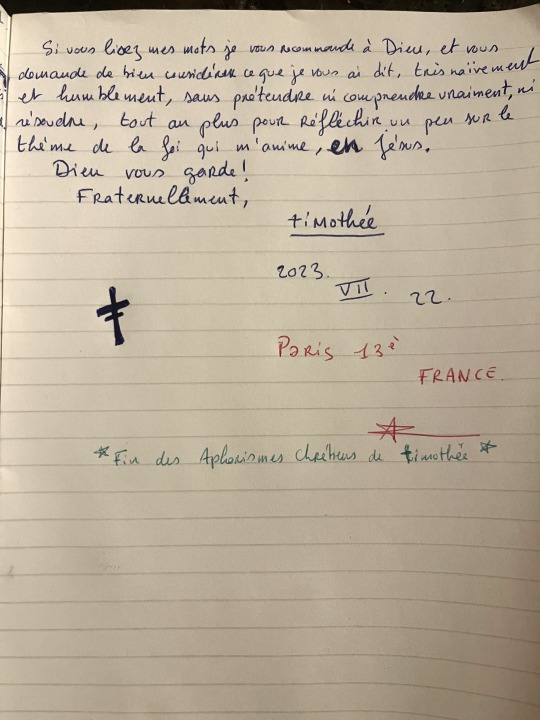 Si vous lisez mes mots je vous recommande à Dieu, et vous
demande de bien considérer ce que je vous ai dit, très naïvement
et humblement, sans prétendre ni comprendre vraiment, ni
résoudre, tout au plus pour réfléchir un peu sur le
thème de la foi qui m'anime, en Jésus.
Dieu vous garde!
Fraternellement,
timothée
2023.
VII. 22.
Paris 13è
FRANCE.
*Fin des Aphorismes Chrétiens de timothée*